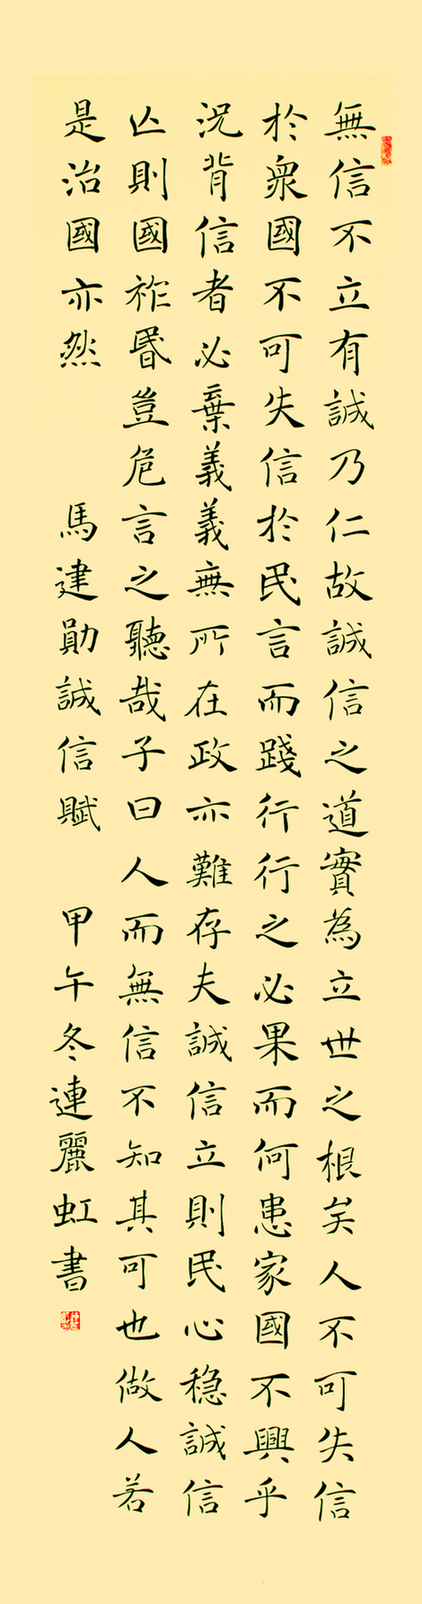 無信不立有誠乃仁故誠信之道實為立世之根矣人不可失信
於衆國不可失信於民言而踐行行之必果而何患家國不興乎
況背信者必棄義義無所在政亦難存夫誠信立則民心穏誠信
亾則國祚晷豈危言之聽哉子曰人而無信不知其可也做人若
是治國亦然 馬建勛誠信賦 甲午冬連麗虹書